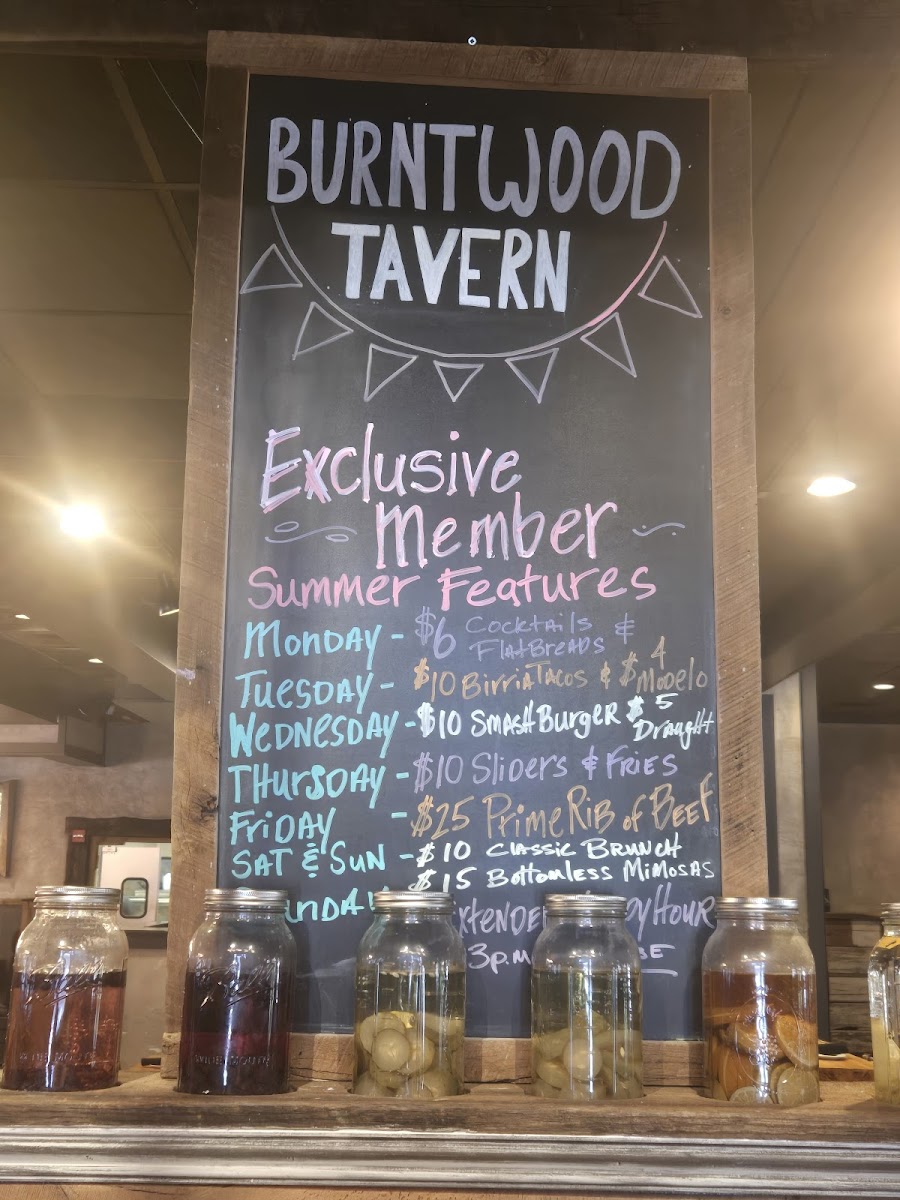 BURNTWOOD
TAVERN
Exclusive
Member
Summer Features
MONDAY - $6 COCKTAILS &
FLATBREADS
TUESDAY - $10 BIRRIA TACOS & $4
MODELO
WEDNESDAY - $10 SMASH BURGER $5
DRAUGHT
THURSDAY - $10 SLIDERS & FRIES
FRIDAY - $25 PRIME RIB of BEEF
SAT & SUN - $10 CLASSIC BRUNCH
$15 BOTTOMLESS MIMOSAS
HOUR
3p.m
WIDE MOUTH